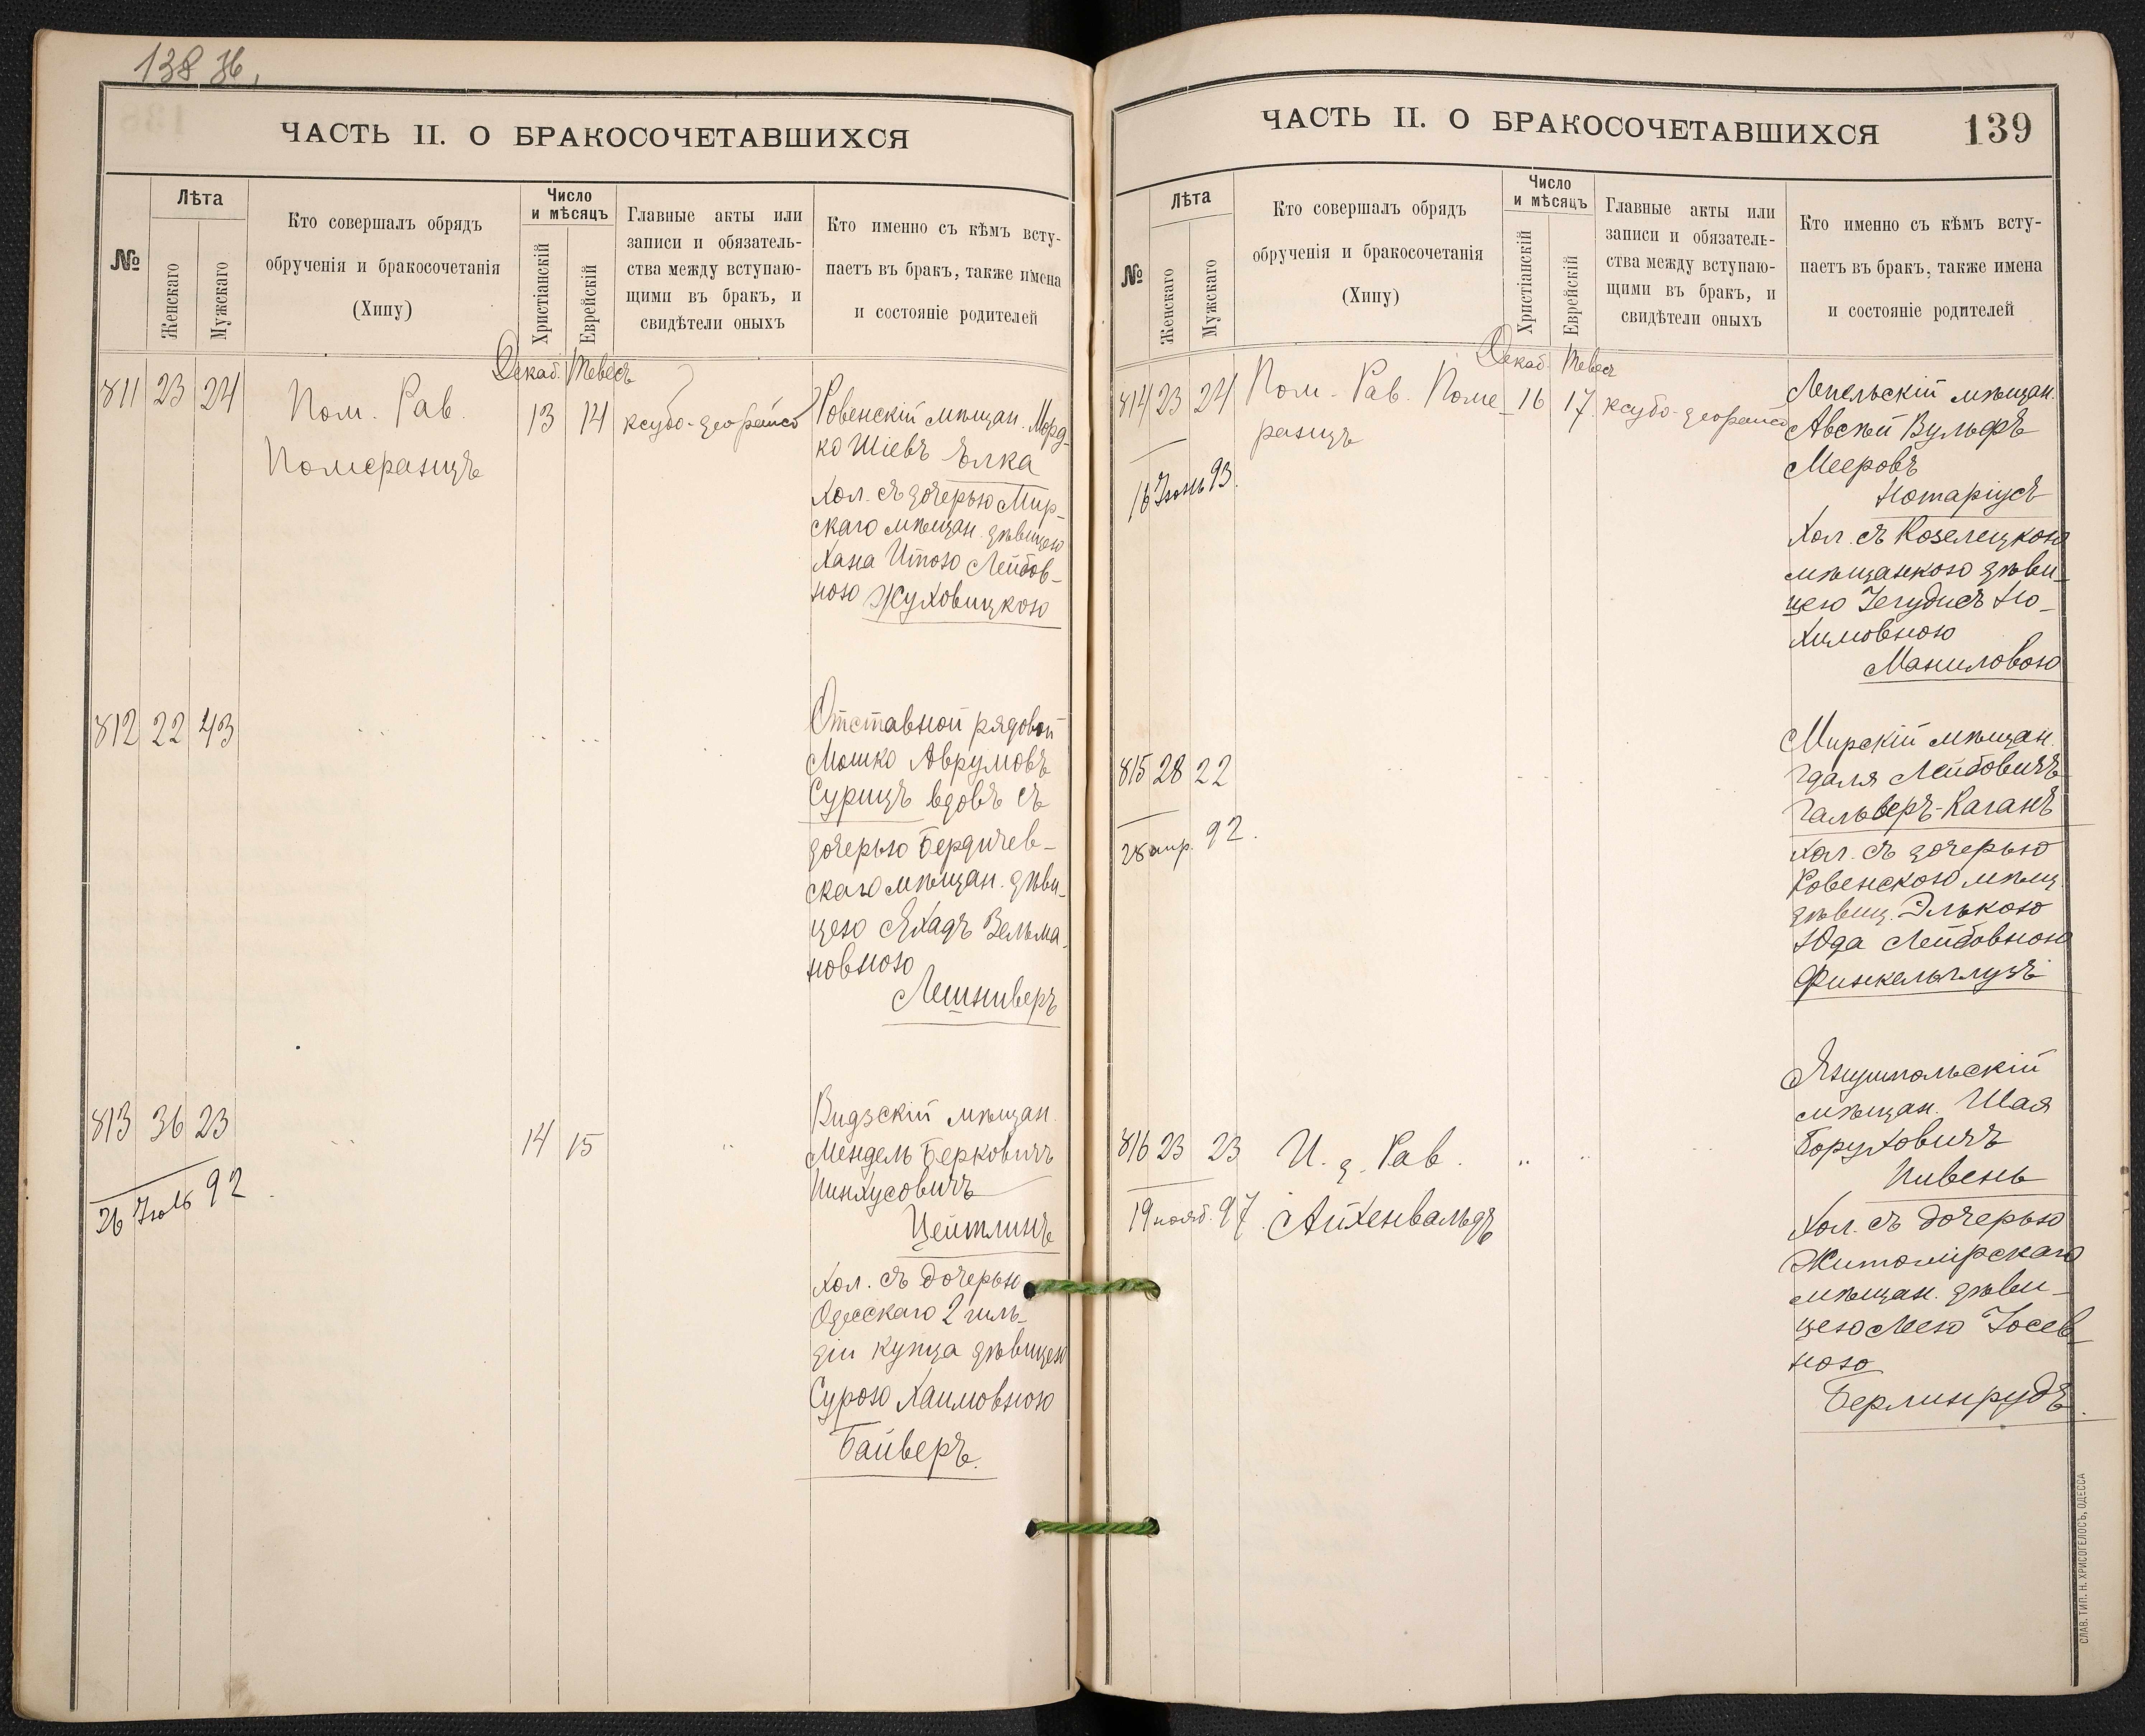 138 об.
ЧАСТЬ II. О БРАКОСОЧЕТАВШИХСЯ
№
Лѣта
Женскаго
Мужскаго
Кто совершалъ обрядъ
обрученія и бракосочетанія
(Хипу)
Число
и мѣсяцъ
Христіанскій
Еврейскій
Главные акты или
записи и обязатель-
ства между вступаю-
щими въ бракъ, и
свидѣтели оныхъ
Кто именно съ кѣмъ всту-
паетъ въ бракъ, также имена
и состояніе родителей
Декаб. Тевесъ
811 23 24
Пом. Рав.
Померанцъ
13 14
ксубо-деорайсо
Ровенскій мѣщан. Морд-
ко Шіевъ Ѣлка
хол. съ дочерью Мир-
скаго мѣщан. дѣвицею
Хана Итою Лейбов-
ною Жуховицкою
812 22 43
Отставной рядовой
Мошко Аврумовъ
Сурицъ вдовъ съ
дочерью Бердичев-
скаго мѣщан. дѣви-
цею Яхадъ Зельма-
новною
Лешниверъ
813 36 23
26 Іюль 92
14 15
Видзскій мѣщан.
Мендель Берковичъ
Пинхусовичъ
Цейтлинъ
хол. съ дочерью
Одесскаго 2 гиль-
діи купца дѣвицею
Сурою Хаимовною
Байверъ.
ЧАСТЬ II. О БРАКОСОЧЕТАВШИХСЯ
139
№
Лѣта
Женскаго
Мужскаго
Кто совершалъ обрядъ
обрученія и бракосочетанія
(Хипу)
Число
и мѣсяцъ
Христіанскій
Еврейскій
Главные акты или
записи и обязатель-
ства между вступаю-
щими въ бракъ, и
свидѣтели оныхъ
Кто именно съ кѣмъ всту-
паетъ въ бракъ, также имена
и состояніе родителей
Декаб. Тевес
814 23 24
16 Іюнь 93.
Пом. Рав. Поме-
ранцъ
16 17.
ксубо-деорайсо
Лепельскій мѣщан.
Авсѣй Вульфъ
Мееровъ
Нотаріусъ
хол. съ Козелецкою
мѣщанкою дѣви-
цею Іегудисъ Но-
химовною
Маниловою
815 28 22
28 апр. 92.
Мирскій мѣщан.
Гдаля Лейбовичъ
Гальверъ-Каганъ
хол. съ дочерью
Ровенскою мѣщ.
дѣвиц. Элькою
Юда Лейбовною
816 23 23
19 нояб. 97.
И. д. Рав.
Айхенвальдъ
Янушпольскій
мѣщан. Шая
Боруховичъ
Пивень
хол. съ дочерью
Житомірскаго
мѣщан. дѣви-
цею Леею Іосев-
ною
Берлинрудъ.
СЛАВ. ТИП. Н. ХРИСОГЕЛОСЪ, ОДЕССА